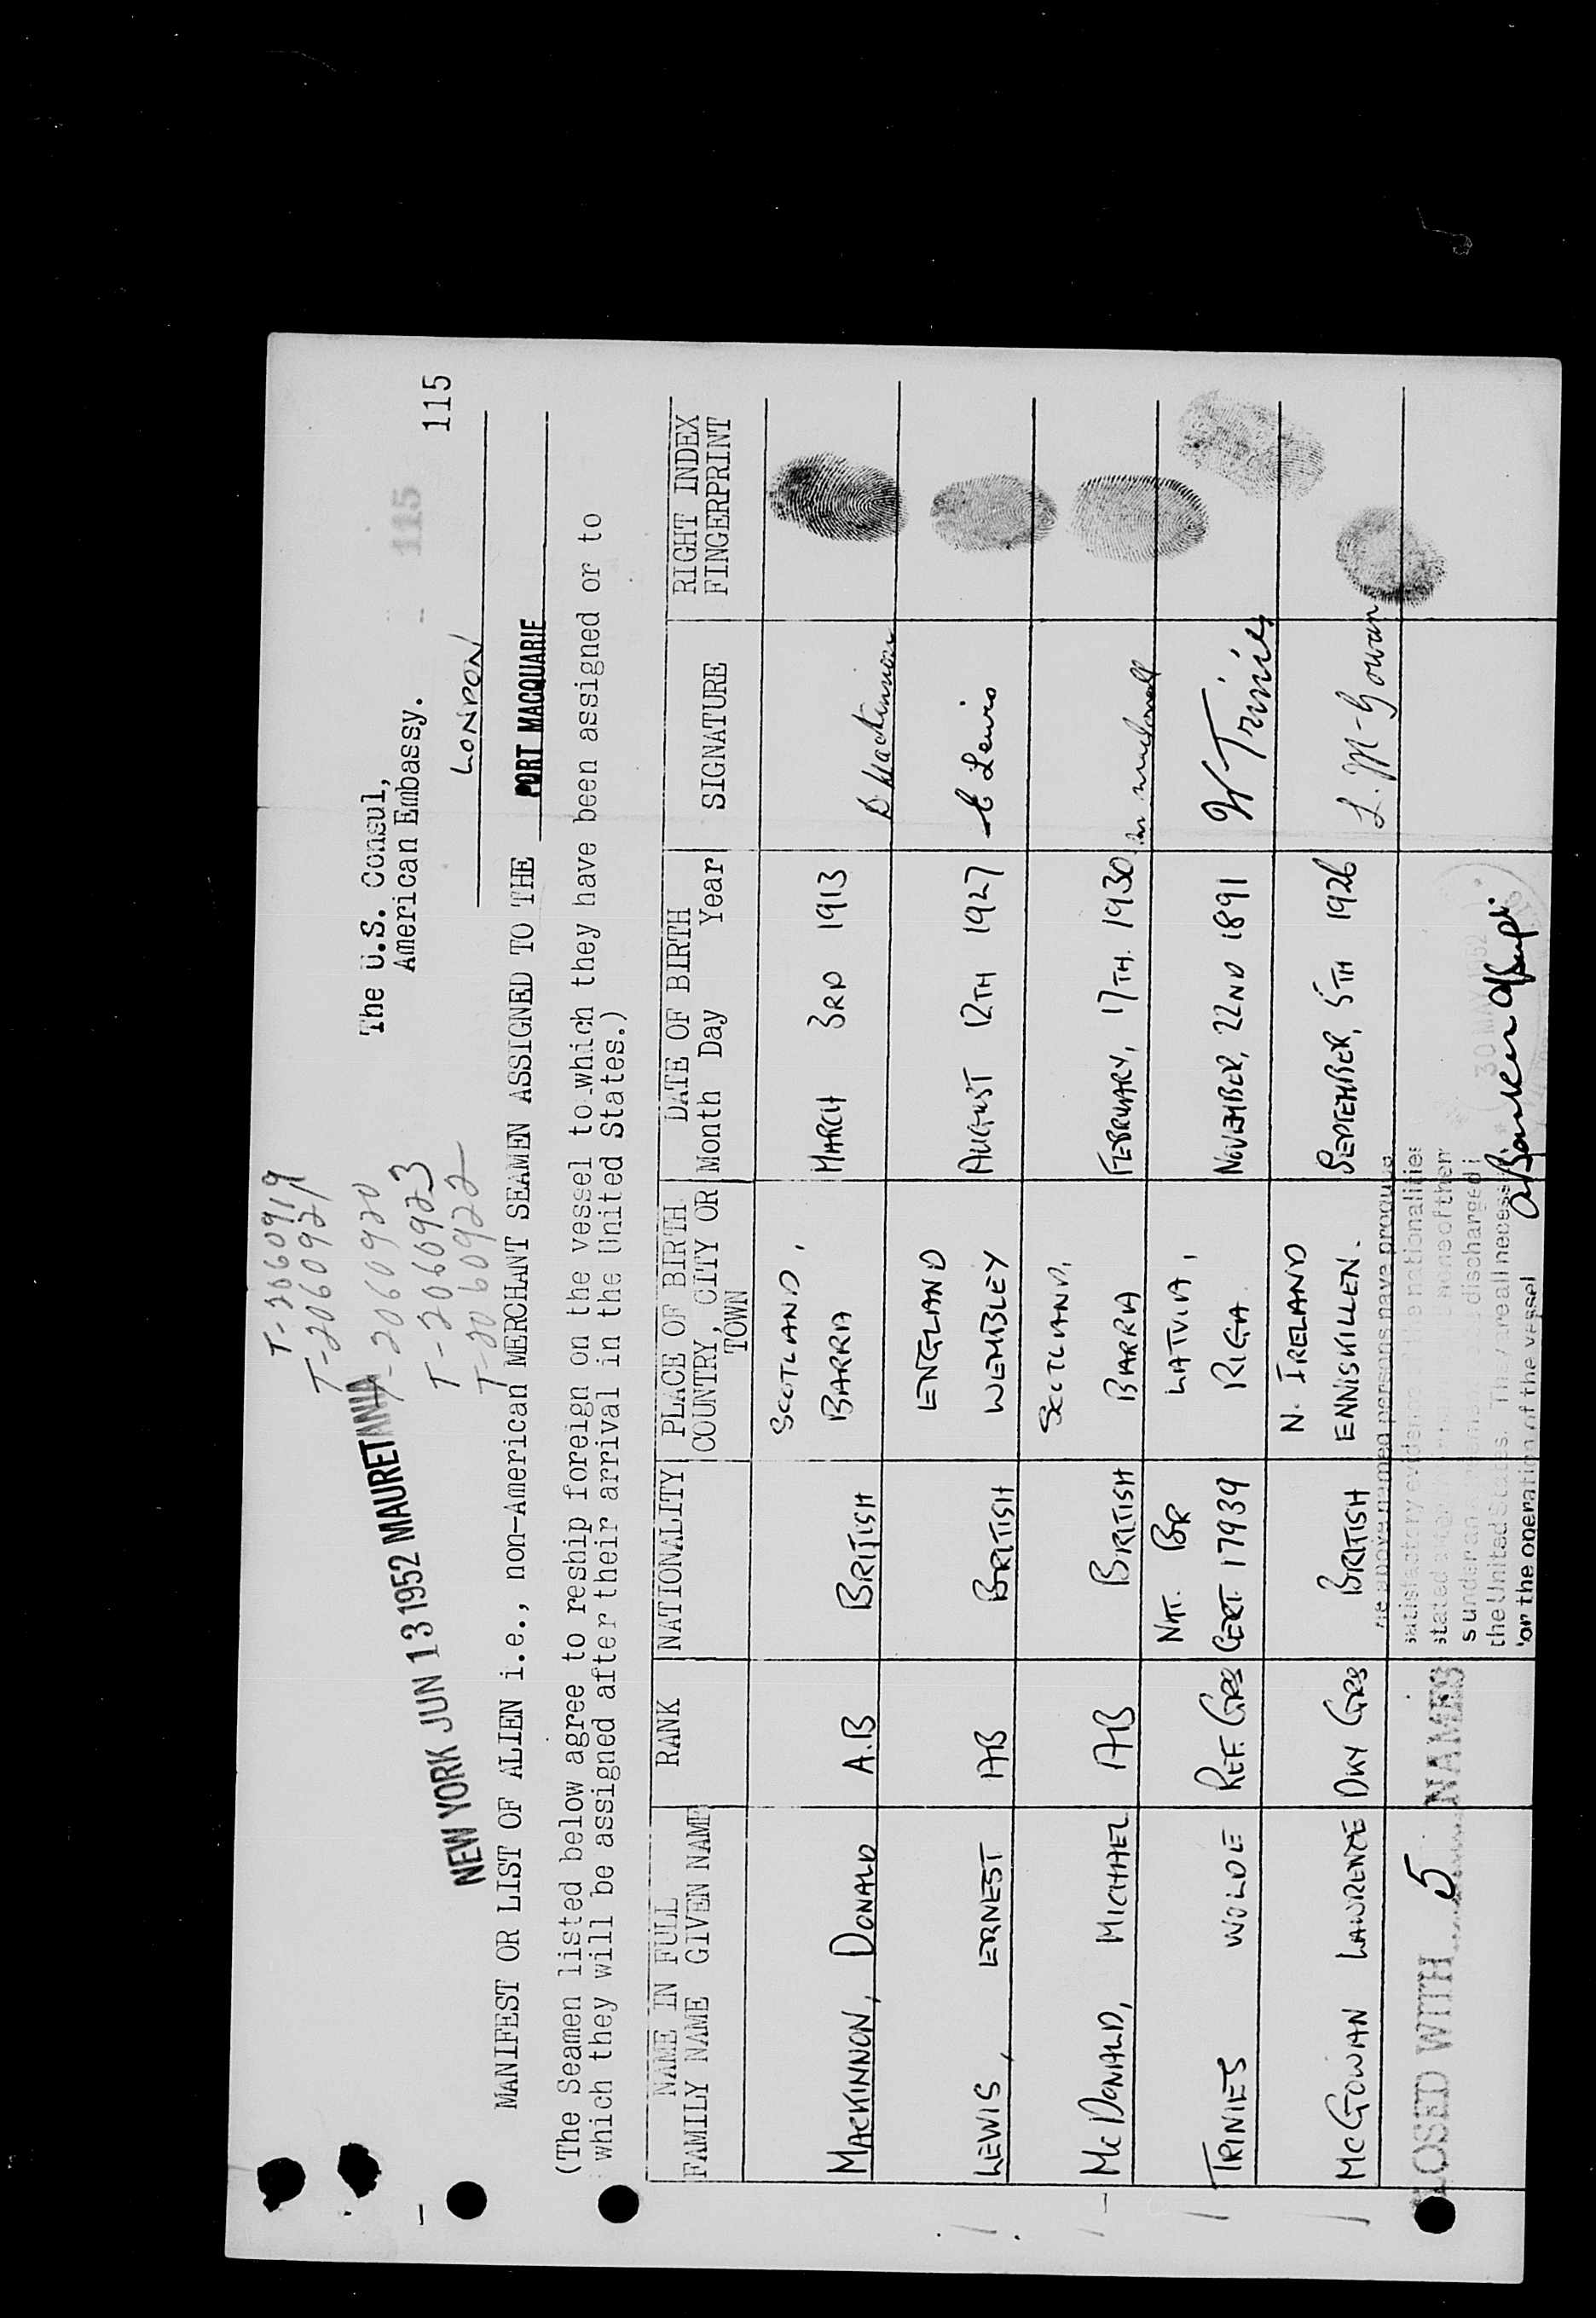 T-2060919
T-2060921
T-2060920
T-2060923
T-2060922
NEW YORK JUN 13 1952 MAURETANIA
The U.S. Consul,
American Embassy.
115
115
LONDON
MANIFEST OR LIST OF ALIEN i.e., non-American MERCHANT SEAMEN ASSIGNED TO THE PORT MACQUARIE
(The Seamen listed below agree to reship foreign on the vessel to which they have been assigned or to
which they will be assigned after their arrival in the United States.)
NAME IN FULL
FAMILY NAME GIVEN NAME
RANK
NATIONALITY
PLACE OF BIRTH
COUNTRY, CITY OR
TOWN
DATE OF BIRTH
Month Day Year
SIGNATURE
RIGHT INDEX
FINGERPRINT
SCOTLAND,
MACKINNON, DONALD A.B BRITISH BARRA MARCH 3RD 1913 D Mackinnon
ENGLAND
LEWIS, ERNEST AB BRITISH WEMBLEY AUGUST 12TH 1927 E Lewis
SCOTLAND,
McDONALD, MICHAEL AB BRITISH BARRA FEBRUARY, 17TH. 1930
NAT. BR LATVIA,
TRINIES WOLDE REF. GRS CERT. 17939 RIGA NOVEMBER, 22ND 1891 W Trinies
N. IRELAND
McGOWAN LAWRENCE DKY GRS BRITISH ENNISKILLEN. SEPTEMBER, 5TH 1926 L. McGowan
LOSED WITH 5 NAMES
he above named persons have produced
satisfactory evidence of the nationalities
stated and none of them
s under an discharged i
the United States. They are all necess
for the operation of the vessel
30 MAY 1952